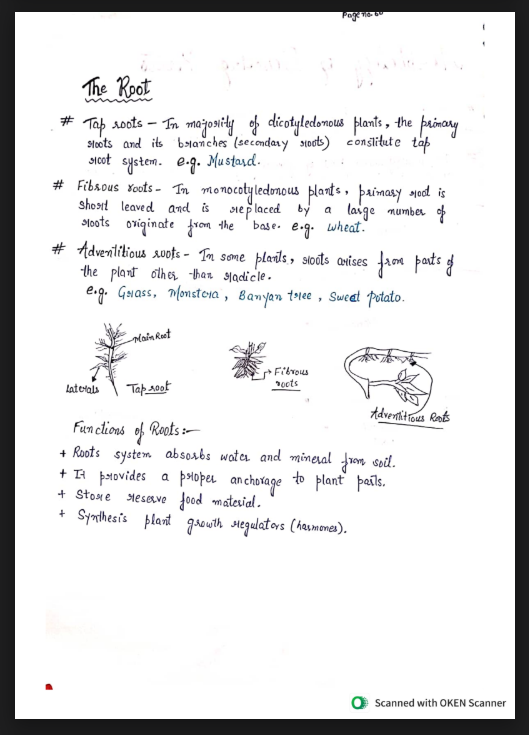 Page no. 60
The Root
# Tap roots – In majority of dicotyledonous plants, the primary
roots and its branches (secondary roots) constitute tap
root system. e.g. Mustard.
# Fibrous roots - In monocotyledonous plants, primary root is
short leaved and is replaced by a large number of
roots originate from the base. e.g. wheat.
# Adventitious roots - In some plants, roots arises from parts of
the plant other than radicle.
e.g. Grass, Monstera, Banyan tree, Sweet Potato.
Main Root
Laterals
Tap root
Fibrous
roots
Adventitious Roots
Functions of Roots:-
+ Roots system absorbs water and mineral from soil.
+ It provides a proper anchorage to plant parts.
+ Store reserve food material.
+ Synthesis plant growth regulators (harmones).
Scanned with OKEN Scanner